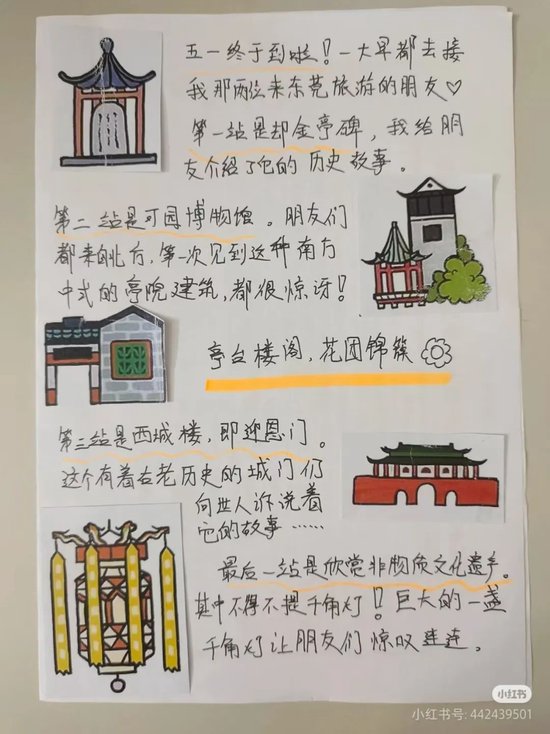 五一终于到啦！一大早都去接
我那两位来东莞旅游的朋友♡
第一站是却金亭碑，我给朋
友介绍了它的历史故事。
第二站是可园博物馆。朋友们
都来自北方，第一次见到这种南方
中式的亭院建筑，都很惊讶！
亭台楼阁，花团锦簇
第三站是西城楼，即迎恩门。
这个有着古老历史的城门仍
向世人诉说着
它的故事……
最后一站是欣赏非物质文化遗产。
其中不得不提千角灯！巨大的一盏
千角灯让朋友们惊叹连连。
小红书
小红书号: 442439501